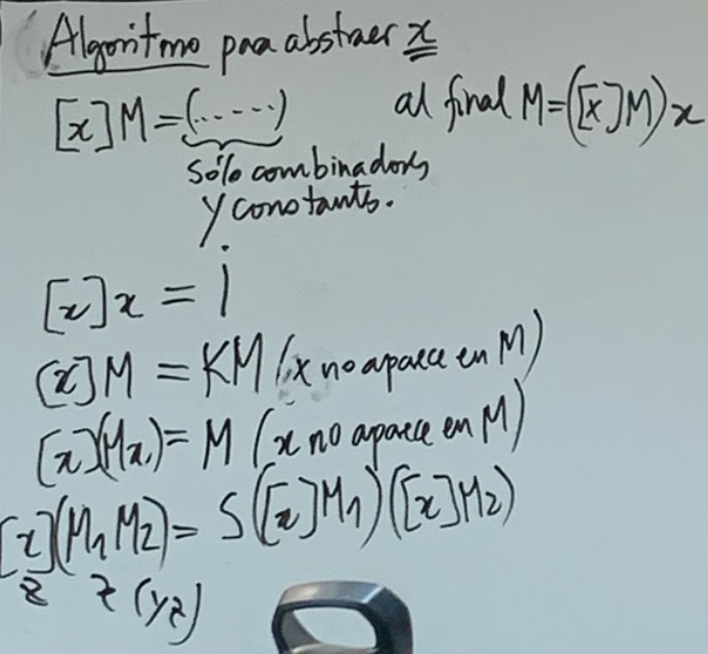 Algoritmo para abstraer x
[x]M = (.....) al final M = ([x]M)x
sólo combinadores
y constants.
[x]x = i
[x]M = KM (x no aparece en M)
[x](Mx) = M (x no aparece en M)
[x](M₁M₂) = S([x]M₁)([x]M₂)
z z (yz)